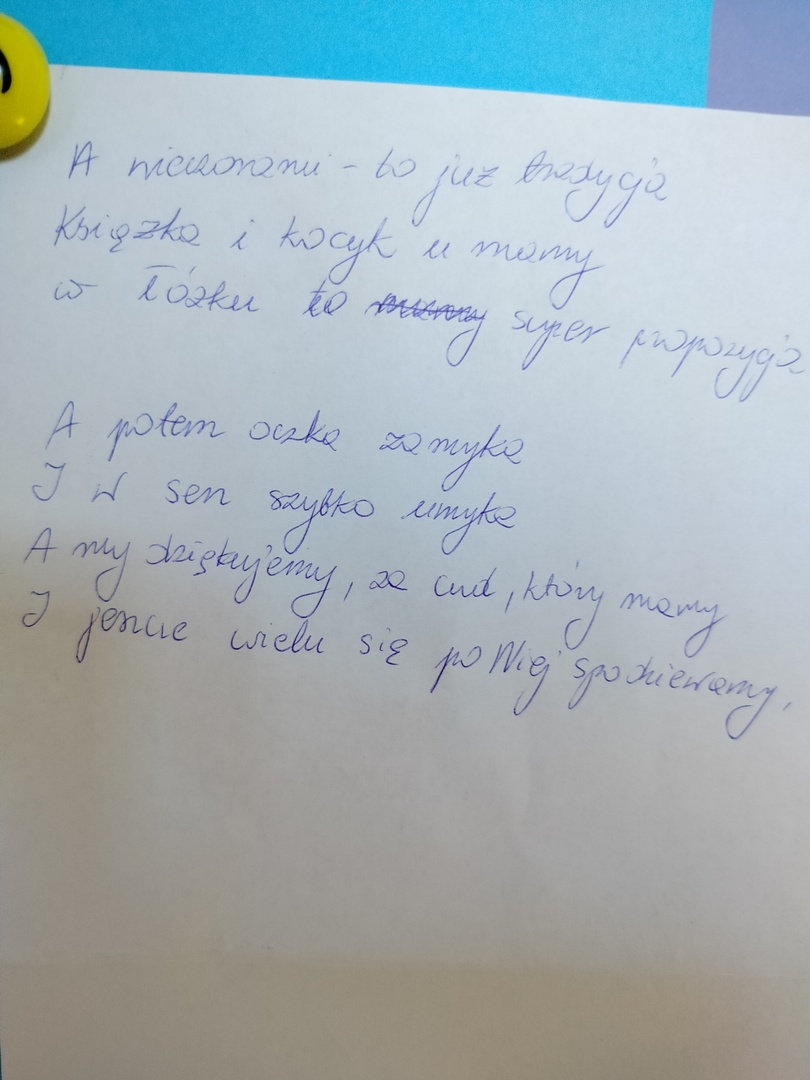 A wieczorami - to już tradycja
Książka i kocyk u mamy
w łóżku to super propozycja
A potem oczka zamyka
I w sen szybko umyka
A my dziękujemy, za cud, który mamy
I jeszcze wielu się po Niej spodziewamy,